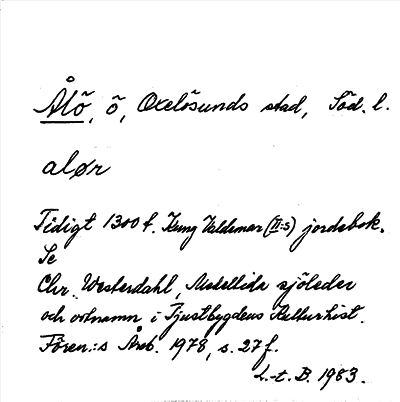 Ålö, ö, Oxelösunds stad, Söd. l.
alør
Tidigt 1300 t. Kung Valdemar (II:s) jordebok.
Se
Chr. Westerdahl, Medeltida sjöleder
och ortnamn i Tjustbygdens Kulturhist.
Fören.:s Årsb. 1978, s. 27 f.
L-t. B. 1983.